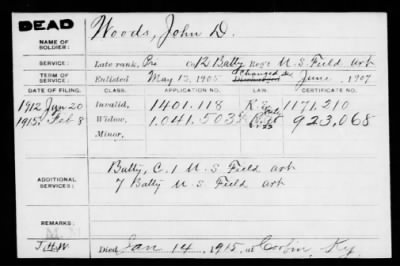 DEAD
NAME OF SOLDIER: Woods, John D.
SERVICE: Late rank, Pvt Co 12 Batty Reg't U.S. Field art
TERM OF SERVICE: Enlisted May 13, 1905 Discharged June, 1907
DATE OF FILING. CLASS. APPLICATION NO. CERTIFICATE NO.
1912 Jan 20 Invalid, 1401.118 1171.210
1915 Feb 8 Widow, 1.041.503 923,068
Minor,
ADDITIONAL SERVICES: Batty, C. 1 U.S Field art
7 Batty U.S Field art
REMARKS:
Died Jan 14, 1915, at Corbin, Ky.